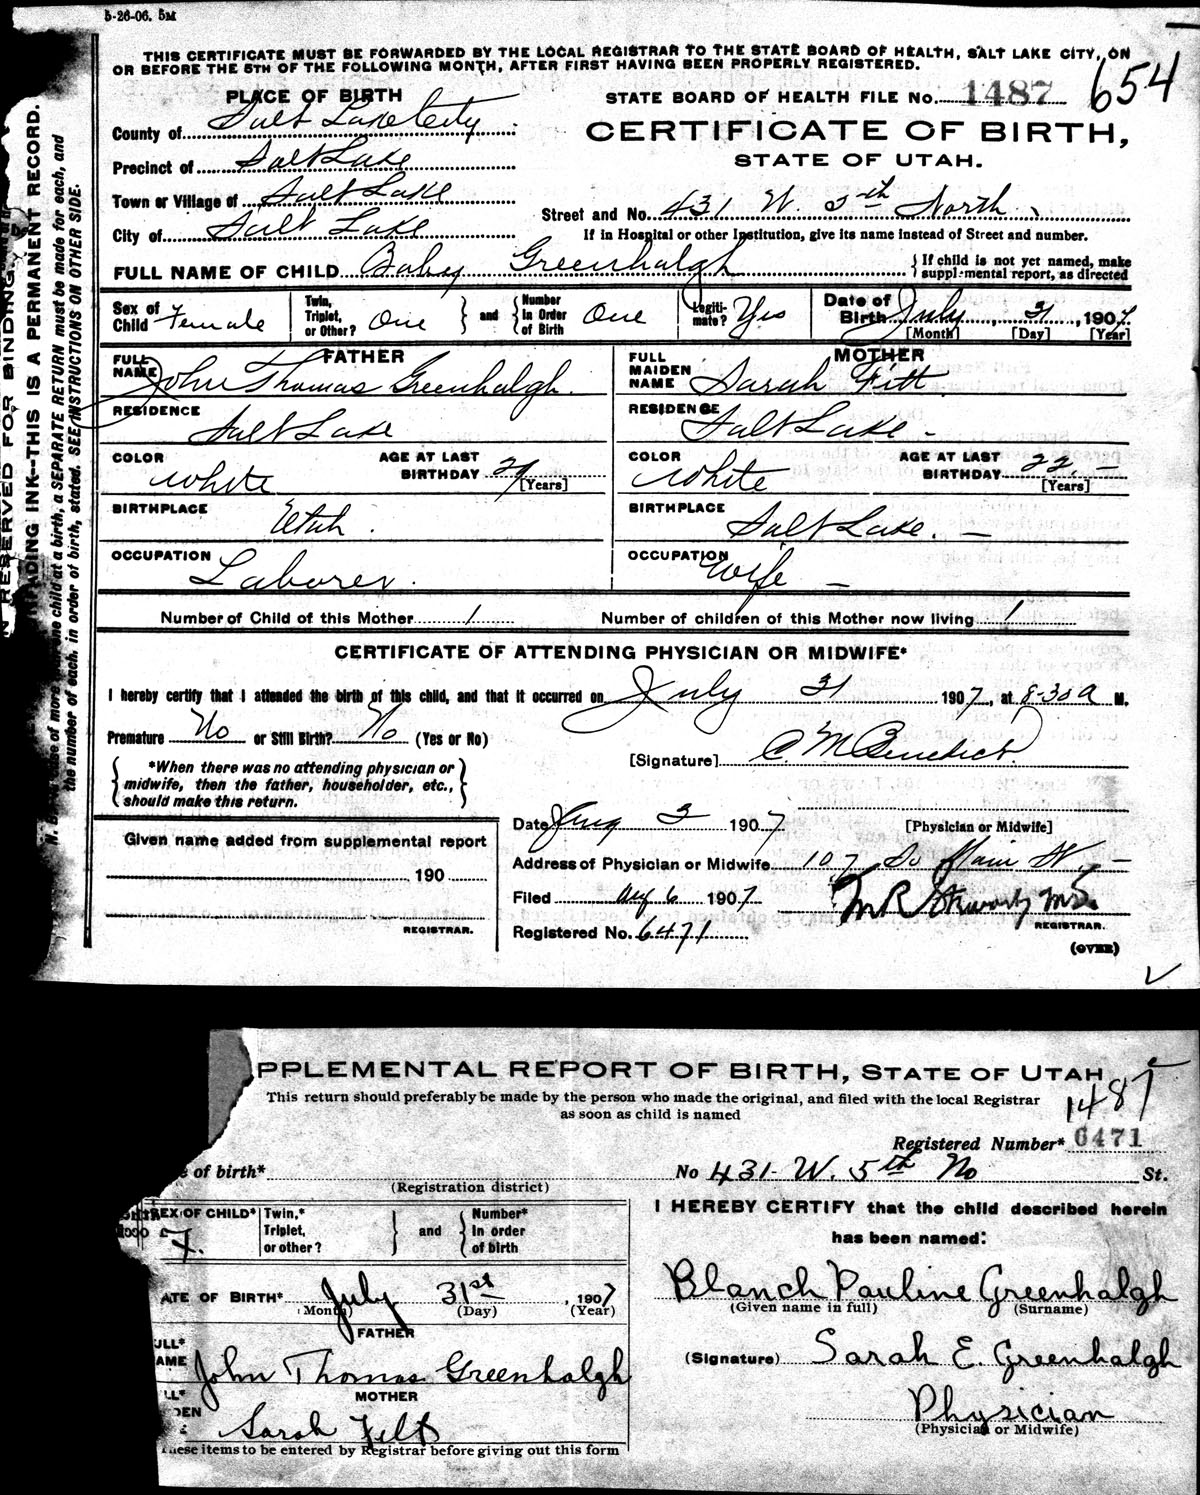 5-26-06. 5M
THIS CERTIFICATE MUST BE FORWARDED BY THE LOCAL REGISTRAR TO THE STATE BOARD OF HEALTH, SALT LAKE CITY, ON
OR BEFORE THE 5TH OF THE FOLLOWING MONTH, AFTER FIRST HAVING BEEN PROPERLY REGISTERED.
PLACE OF BIRTH
STATE BOARD OF HEALTH FILE No. 1487 654
County of Salt Lake City
CERTIFICATE OF BIRTH,
STATE OF UTAH.
Precinct of Salt Lake
Town or Village of Salt Lake
Street and No. 431 W. 5th North
City of Salt Lake
If in Hospital or other Institution, give its name instead of Street and number.
FULL NAME OF CHILD Baby Greenhalgh
{If child is not yet named, make
supplemental report, as directed
Sex of Child Female
Twin, Triplet, or Other? One } and { Number In Order of Birth One
Legitimate? Yes
Date of Birth July 31, 1907
[Month] [Day] [Year]
FATHER
FULL NAME John Thomas Greenhalgh.
RESIDENCE Salt Lake
COLOR White
AGE AT LAST BIRTHDAY [Years]
BIRTHPLACE Utah.
OCCUPATION Laborer.
MOTHER
FULL MAIDEN NAME Sarah Fitt
RESIDENCE Salt Lake -
COLOR White
AGE AT LAST BIRTHDAY 22. - [Years]
BIRTHPLACE Salt Lake. -
OCCUPATION Wife -
Number of Child of this Mother 1
Number of children of this Mother now living 1
CERTIFICATE OF ATTENDING PHYSICIAN OR MIDWIFE*
I hereby certify that I attended the birth of this child, and that it occurred on July 31 1907, at 8-30 a M.
Premature No or Still Birth? No (Yes or No)
[Signature] C. M. Benedict.
{*When there was no attending physician or
midwife, then the father, householder, etc.,
should make this return.}
Date Aug 3 1907
[Physician or Midwife]
Given name added from supplemental report
190
REGISTRAR.
Address of Physician or Midwife 107 So Main St. -
Filed Aug 6 1907
Registered No. 6471
REGISTRAR.
(OVER)
N RESERVED FOR BINDING
ADING INK--THIS IS A PERMANENT RECORD.
child at a birth, a SEPARATE RETURN must be made for each, and
the number of each, in order of birth, stated. SEE INSTRUCTIONS ON OTHER SIDE.
PPLEMENTAL REPORT OF BIRTH, STATE OF UTAH
This return should preferably be made by the person who made the original, and filed with the local Registrar
as soon as child is named
1487
Registered Number* 6471
of birth*
(Registration district)
No 431- W. 5th No St.
SEX OF CHILD* F.
Twin,* Triplet, or other? } and { Number* In order of birth
I HEREBY CERTIFY that the child described herein
has been named:
ATE OF BIRTH* July 31st, 1907
(Month) (Day) (Year)
Blanch Pauline Greenhalgh
(Given name in full) (Surname)
FATHER
ULL* AME John Thomas Greenhalgh
(Signature) Sarah E. Greenhalgh
MOTHER
Sarah
Physician
(Physician or Midwife)
hese items to be entered by Registrar before giving out this form